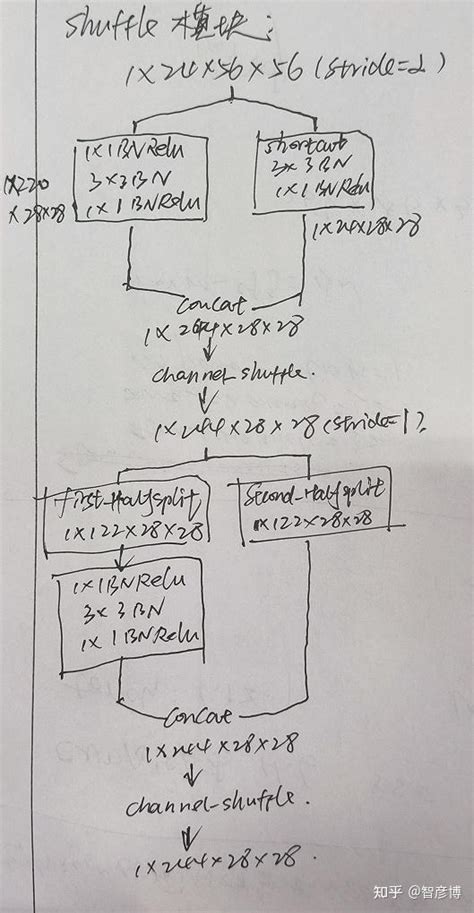 shuffle 模块:
1×24×56×56 (stride=2)
1×1BNRelu
3×3BN
1×1BNRelu
shortcut
3×3BN
1×1BNRelu
1×220
×28×28
1×24×28×28
Concat
1×244×28×28
channel-shuffle.
1×244×28×28 (stride=1)
first-Halfsplit
1×122×28×28
Second-Halfsplit
1×122×28×28
1×1BNRelu
3×3BN
1×1BNRelu
Concat
1×244×28×28
channel-shuffle.
1×244×28×28.
知乎 @智彦博